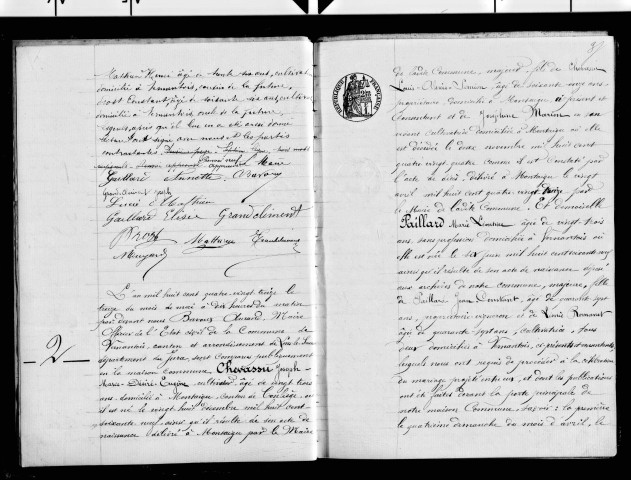 Mathieu Henri âgé de trente six ans, cultivateur
domicilié à Vernantois, cousin de la future,
Prost Constant, âgé de soixante six ans, cultivateur
domicilié à Vernantois oncle de la future,
lesquels, après qu'il leur en a été aussi donné
lecture l'ont signé avec nous et les parties
contractantes.
Maire
Gaillard Annette Buvour
Grandclément
Lucie Mathieu
Gaillard Elise Grandclément
Prost Mathieu Grandclément
- 2 -
L'an mil huit cent quatre vingt treize le
treize du mois de mai à dix heures du matin
par devant nous Maire
Officier de l'Etat civil de la Commune de
Vernantois, canton et arrondissement de Lons le Saunier
département du Jura, sont comparus publiquement
en la maison commune Chevassu Joseph
Marie Désiré Eugène cultivateur âgé de vingt trois
ans, domicilié à Montaigu, canton de Conliège, où
il est né le vingt huit décembre mil huit cent
soixante neuf, ainsi qu'il résulte de son acte de
naissance délivré à Montaigu par le Maire
37
RÉPUBLIQUE FRANÇAISE
de ladite Commune, majeur, fils de Chevassu
Louis âgé de soixante ans,
propriétaire, domicilié à Montaigu, ici présent et
consentant et de Joséphine Marion en son
vivant cultivatrice domiciliée à Montaigu où elle
est décédée le douze novembre mil huit cent
quatre vingt quatre comme il est constaté par
l'acte de décès, délivré à Montaigu le vingt
avril mil huit cent quatre vingt treize par
le Maire de ladite Commune. Et demoiselle
Paillard Marie Léontine âgée de vingt trois
ans, sans profession domiciliée à Vernantois où
elle est née le six juin mil huit cent soixante neuf
ainsi qu'il résulte de son acte de naissance déposé
aux archives de notre commune, majeure, fille
de Paillard Jean Constant, âgé de
ans, propriétaire vigneron et de Louise Romanet
âgée de quarante sept ans, cultivatrice, tous
deux domiciliés à Vernantois, ici présents et consentants
lesquels nous ont requis de procéder à la célébration
du mariage projeté entre eux, et dont les publications
ont été faites devant la porte principale de
notre maison Commune, savoir : la première
le quatrième dimanche du mois d'avril, le